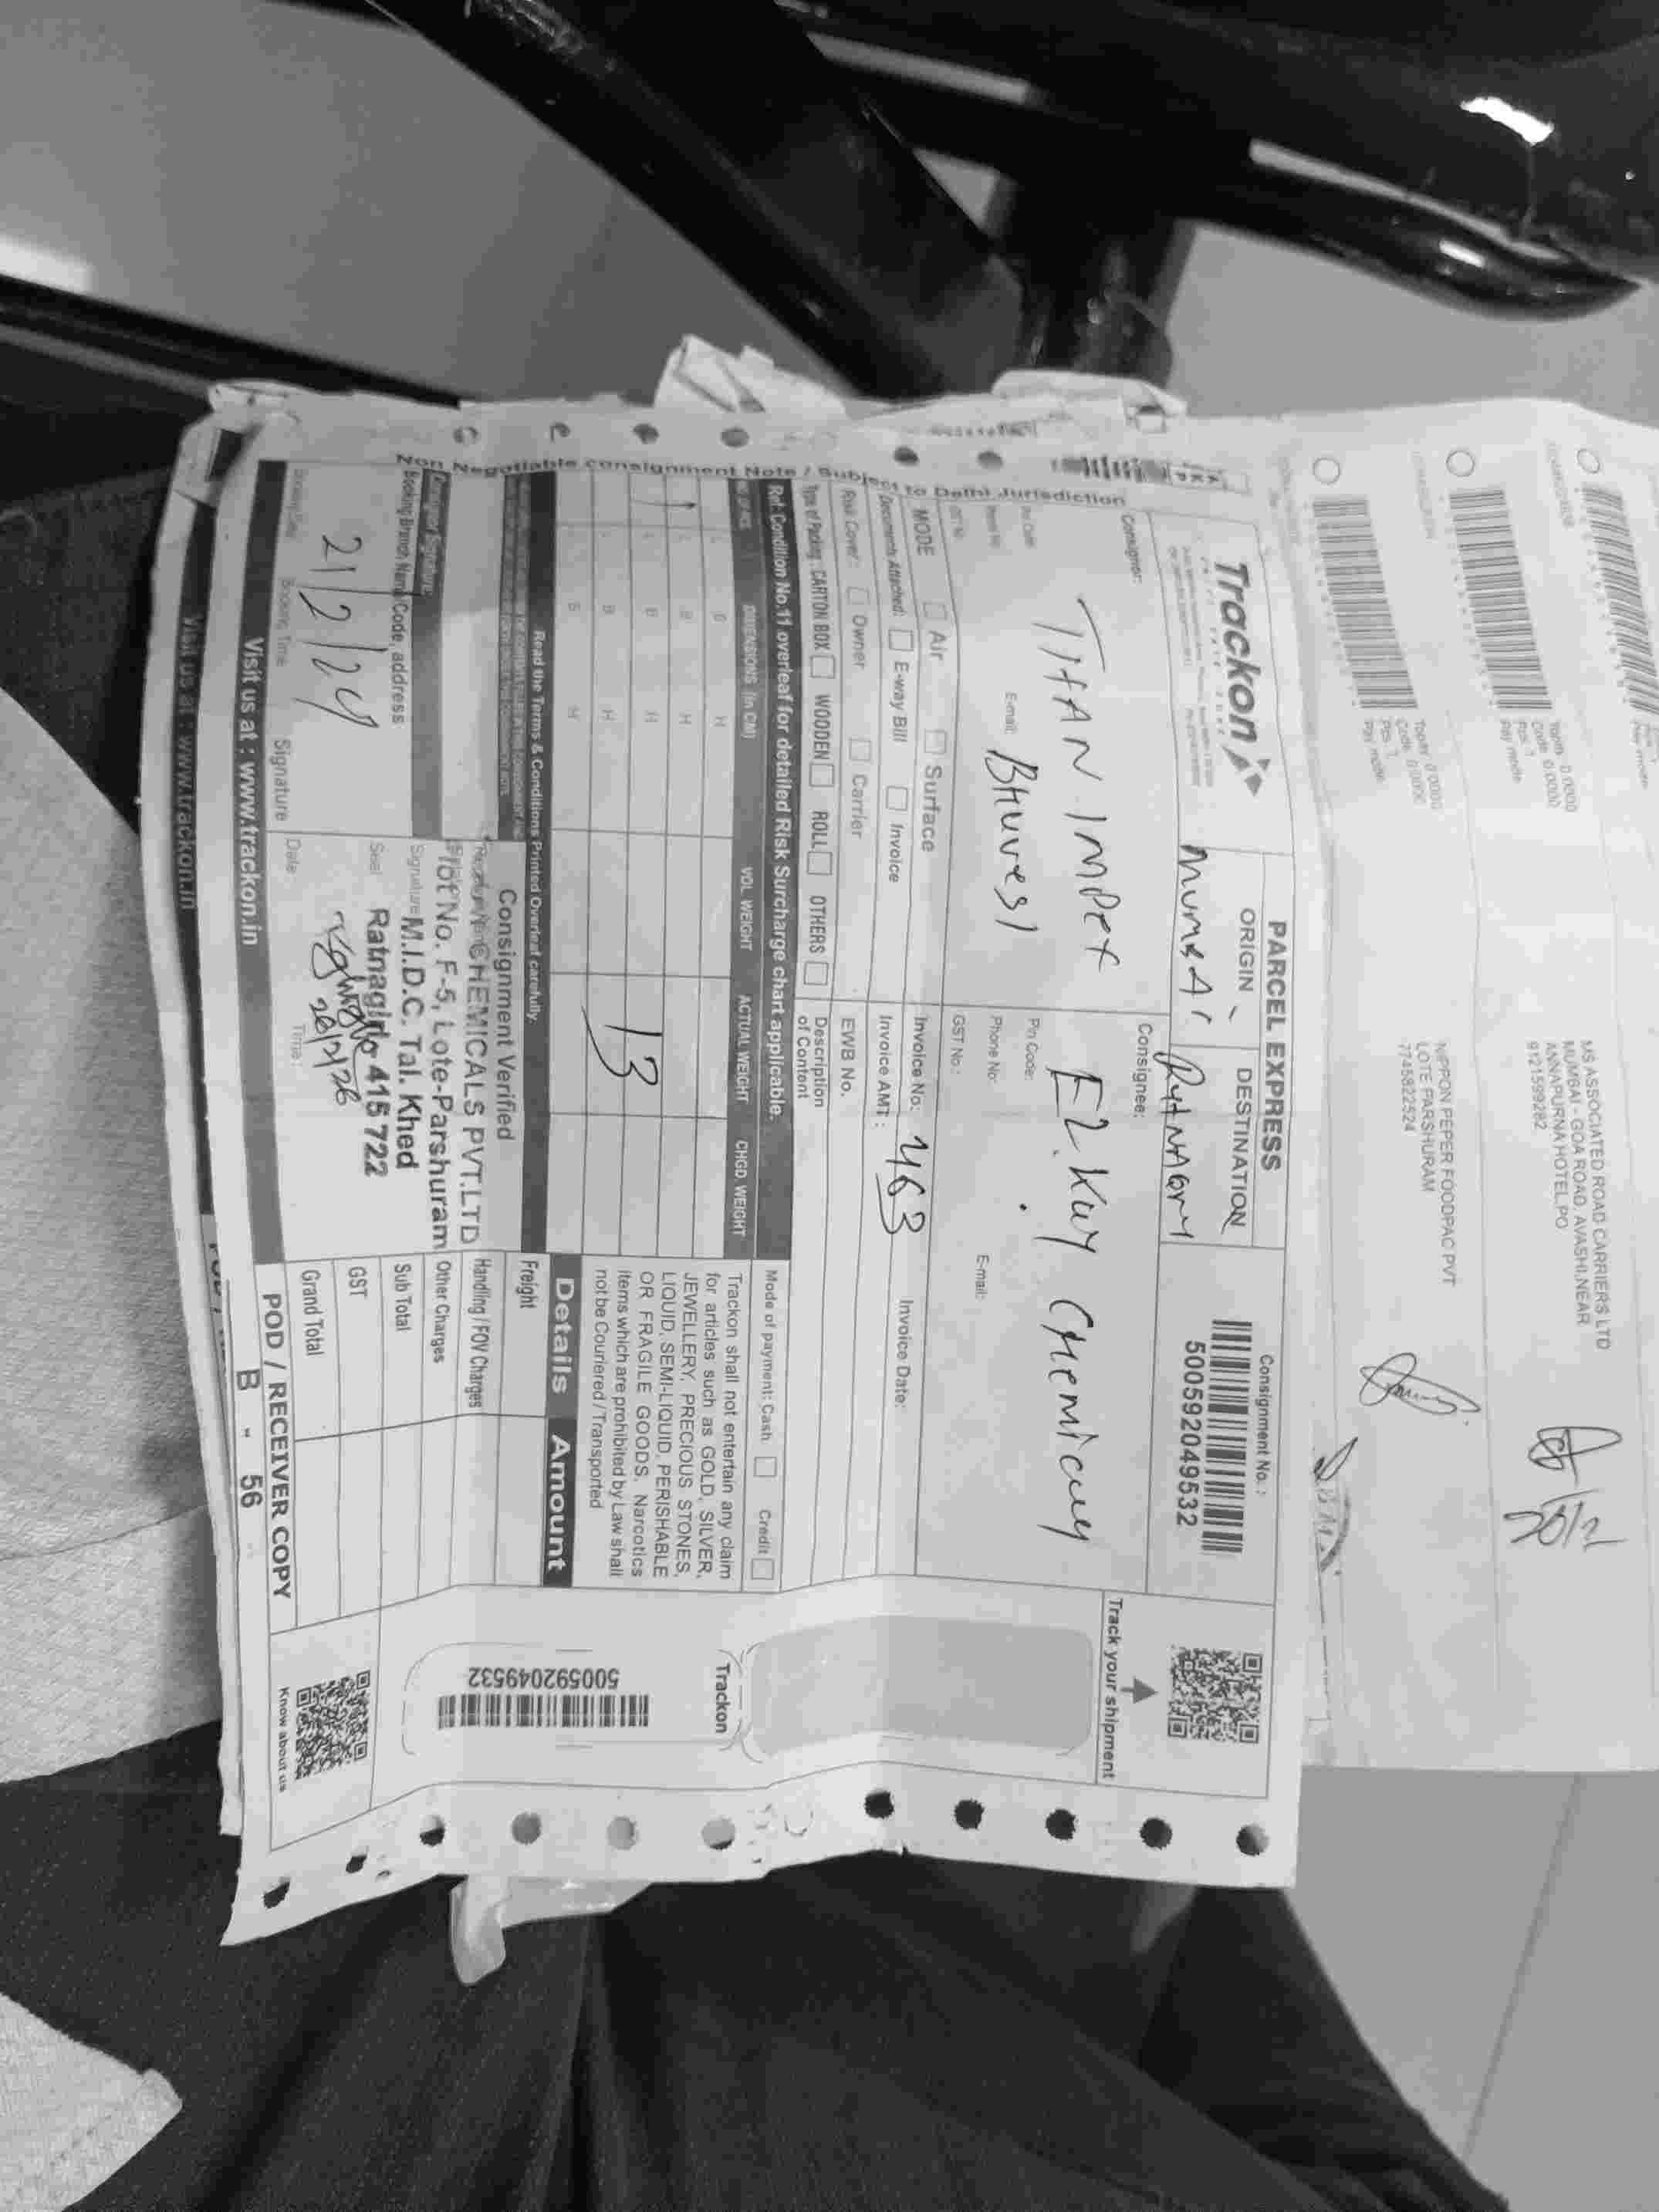 MS ASSOCIATED ROAD CARRIERS LTD
MUMBAI - GOA ROAD, AVASHI,NEAR
ANNAPURNA HOTEL,PO
9121599282
NIPPON PEPER FOODPAC PVT
LOTE PARSHURAM
7745822524
20/2
Non Negotiable consignment Note / Subject to Delhi Jurisdiction
Trackon
PARCEL EXPRESS
ORIGIN
DESTINATION
Mumbai
Consignment No. :
500592049532
Track your shipment
Consignor:
TITAN IMPEX
E-mail:
Consignee:
EZ. Kay Chemical
Pin Code:
Phone No:
GST No.:
E-mail:
MODE Air Surface
Documents Attached: E-way Bill Invoice
Risk Cover: Owner Carrier
Type of Packing: CARTON BOX WOODEN ROLL OTHERS
Invoice No.: 463
Invoice Date:
Invoice AMT:
EWB No.
Description of Content
Ref: Condition No.11 overleaf for detailed Risk Surcharge chart applicable.
Mode of payment: Cash Credit
DIMENSIONS (In CM) VOL WEIGHT ACTUAL WEIGHT CHGD. WEIGHT
B H
B H
B H
B H
B H
13
Trackon shall not entertain any claim
for articles such as GOLD, SILVER,
JEWELLERY, PRECIOUS STONES,
LIQUID, SEMI-LIQUID, PERISHABLE
OR FRAGILE GOODS, Narcotics
items which are prohibited by Law shall
not be Couriered / Transported
Trackon
500592049532
Read the Terms & Conditions Printed Overleaf carefully.
Details Amount
Freight
Handling / FOV Charges
Other Charges
Sub Total
GST
Grand Total
Consignment Verified
CHEMICALS PVT.LTD
Plot No. F-5, Lote-Parshuram
Signature M.I.D.C. Tal. Khed
Seal
Ratnagiri 415 722
20/2/26
Date:
Time:
Booking Branch Name Code, address
21/2/24
Booking Time
Signature
POD / RECEIVER COPY
Know about us
Visit us at : www.trackon.in
B - 56
Visit us at : www.trackon.in